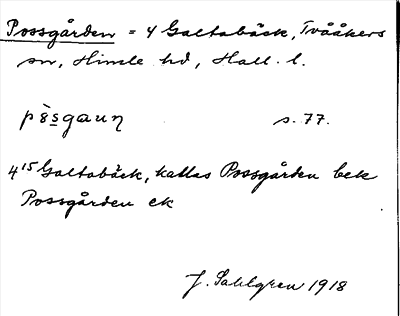 Possgården = 4 Galtabäck, Tvååkers
sn, Himle hd, Hall. l.
s. 77.
4¹⁵ Galtabäck, kallas Possgården bek
Possgården ek
J. Sahlgren 1918